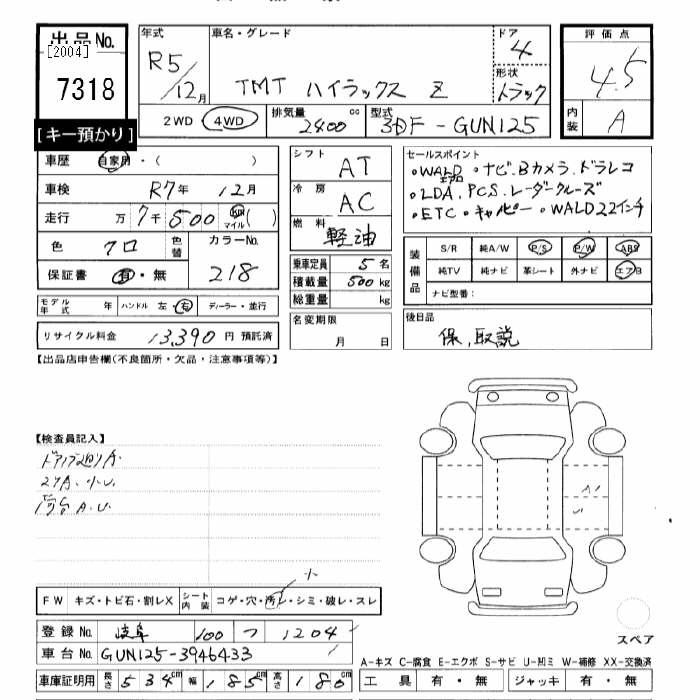 出品No.
[2004]
7318
[キー預かり]
年式 車名・グレード ドア
R5/12月 TMT ハイラックス Z 4
形状 トラック
2WD 4WD 排気量 2400 cc 型式 3DF-GUN125
評価点
4.5
内装 A
車歴 自家用・( )
車検 R7年 12月
走行 万 7千 500 km マイル( )
色 クロ 色替 カラーNo. 218
保証書 有・無
モデル年式 年 ハンドル 左 右 ディーラー・並行
リサイクル料金 13,390 円 預託済
シフト AT
冷房 AC
燃料 軽油
乗車定員 5 名
積載量 500 kg
総重量 kg
名変期限 月 日
セールスポイント
・WALDエアロ ・ナビ.Bカメラ.ドラレコ
・LDA.PCS.レーダークルーズ
・ETC ・キャルピー ・WALD22インチ
装備品 S/R 純A/W P/S P/W ABS
純TV 純ナビ 革シート 外ナビ エアB
ナビ型番:
後日品
保,取説
【出品店申告欄(不良箇所・欠品・注意事項等)】
【検査員記入】
ドア廻りA.
スリA.小U.
荷台A.U.
小
FW キズ・トビ石・割レX シート内装 コゲ・穴・汚レ・シミ・破レ・スレ
登録No. 岐阜 100 つ 1204
車台No. GUN125-3946433
車庫証明用 長さ 534cm 幅 185cm 高さ 180cm
A1
スペア
A-キズ C-腐食 E-エクボ S-サビ U-凹ミ W-補修 XX-交換済
工具 有・無 ジャッキ 有・無